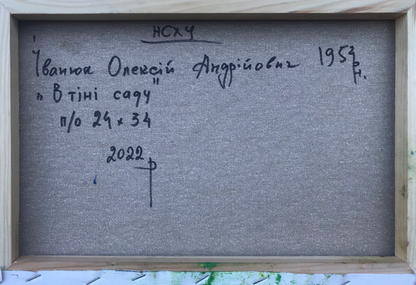 НСХУ
Іванюк Олексій Андрійович 1953 р.н.
"В тіні саду"
п/о 24 x 34
2022 р